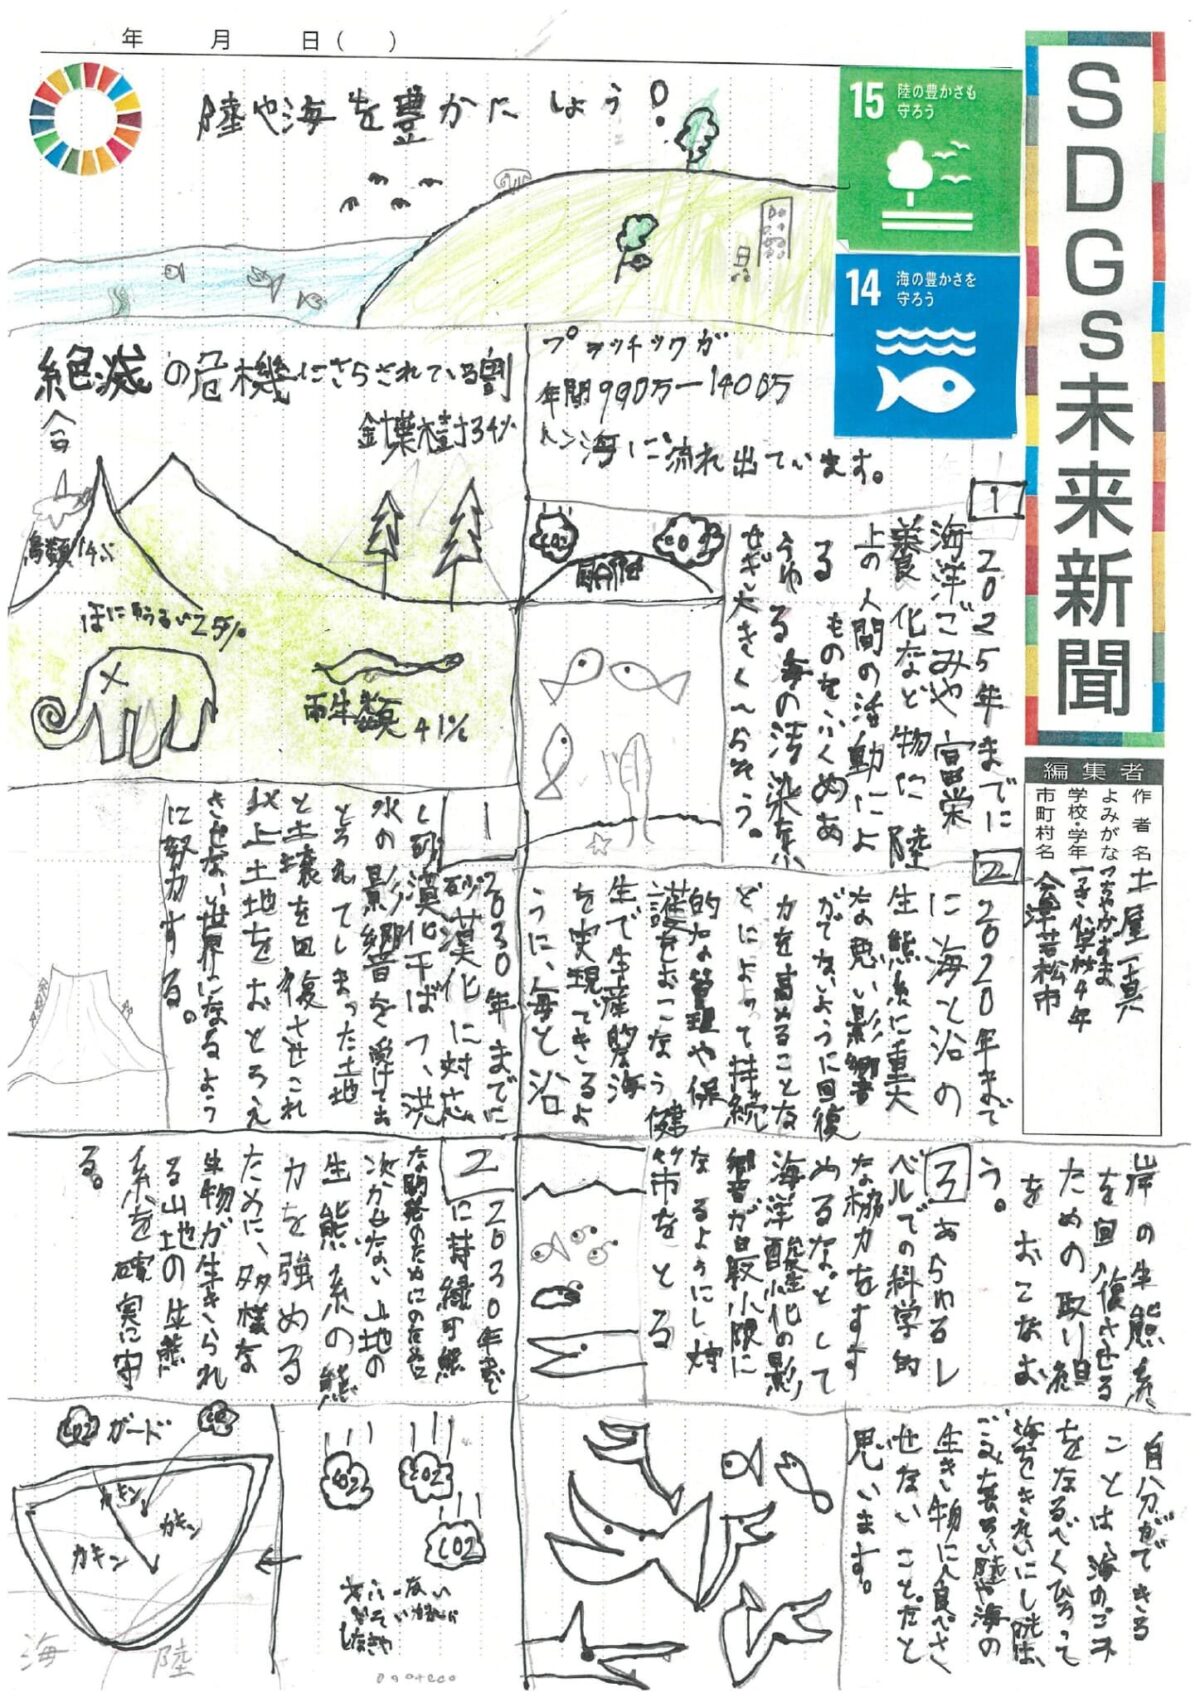 年　月　日(　)
陸や海を豊かにしよう!
15 陸の豊かさも
守ろう
14 海の豊かさを
守ろう
SDGs未来新聞
編集者
作者名 土屋一真
よみがな つちやかずま
学校・学年 一き小学校4年
市町村名 会津若松市
プラッチックが
年間990万ー1406万
トン海に流れ出ています。
絶滅の危機にさらされている割
合
針葉樹34%
鳥類14%
ほにゅうるい25%
両生類 41%
1
2025年までに
海洋ごみや富栄
養化など物に陸
上の人間の活動によ
る
ものをふくめあ
らゆる海の汚染をふ
せぎ大きくへらそう。
CO2
CO2
2
2020年まで
に海と沿の
生態系に重大
な悪い影響
がでないように回復
力を高めることな
どによって持続
的な管理や保
護をおこなう健
生で生産的な海
を実現できるよ
うに、海と沿
岸の生態系
を回復させる
ための取り組
をおこなお
う。
3
あらゆるレ
ベルでの科学的
な協力をすす
めるなどして
海洋酸性化の影
響が最小限に
なるようにし、対
策をとる
1
2030年までに
砂漠化に対応
し砂漠化干ばつ、洪
水の影響を受けてお
とろえてしまった土地
と土壌を回復させこれ
以上土地をおとろえ
させない世界になるよう
に努力する。
2
2030年まで
に持続可能
な開発のために
次かせない山地の
生態系の
力を強める
ために、多様な
生物が生きられ
る山地の生態
系を確実に守
る。
自分ができる
ことは、海のゴミ
をなるべくひろって
海をきれいにし
ごみを
陸や海の
生き物に食べさ
せないことだと
思います。
CO2 ガード CO2
カキン
カキン
カキン
海　陸
CO2
CO2
CO2